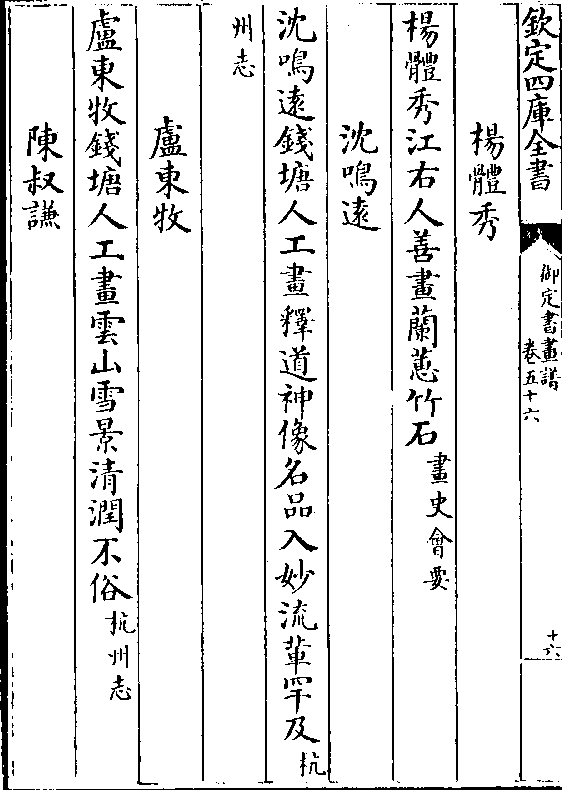 欽定四庫全書
御定書畫譜
卷五十六
十六
楊體秀
楊體秀江右人善畫蘭蕙竹石畫史會要
沈鳴遠
沈鳴遠錢塘人工畫釋道神像名品入妙流輩罕及杭
州志
盧東牧
盧東牧錢塘人工畫雲山雪景清潤不俗杭州志
陳叔謙